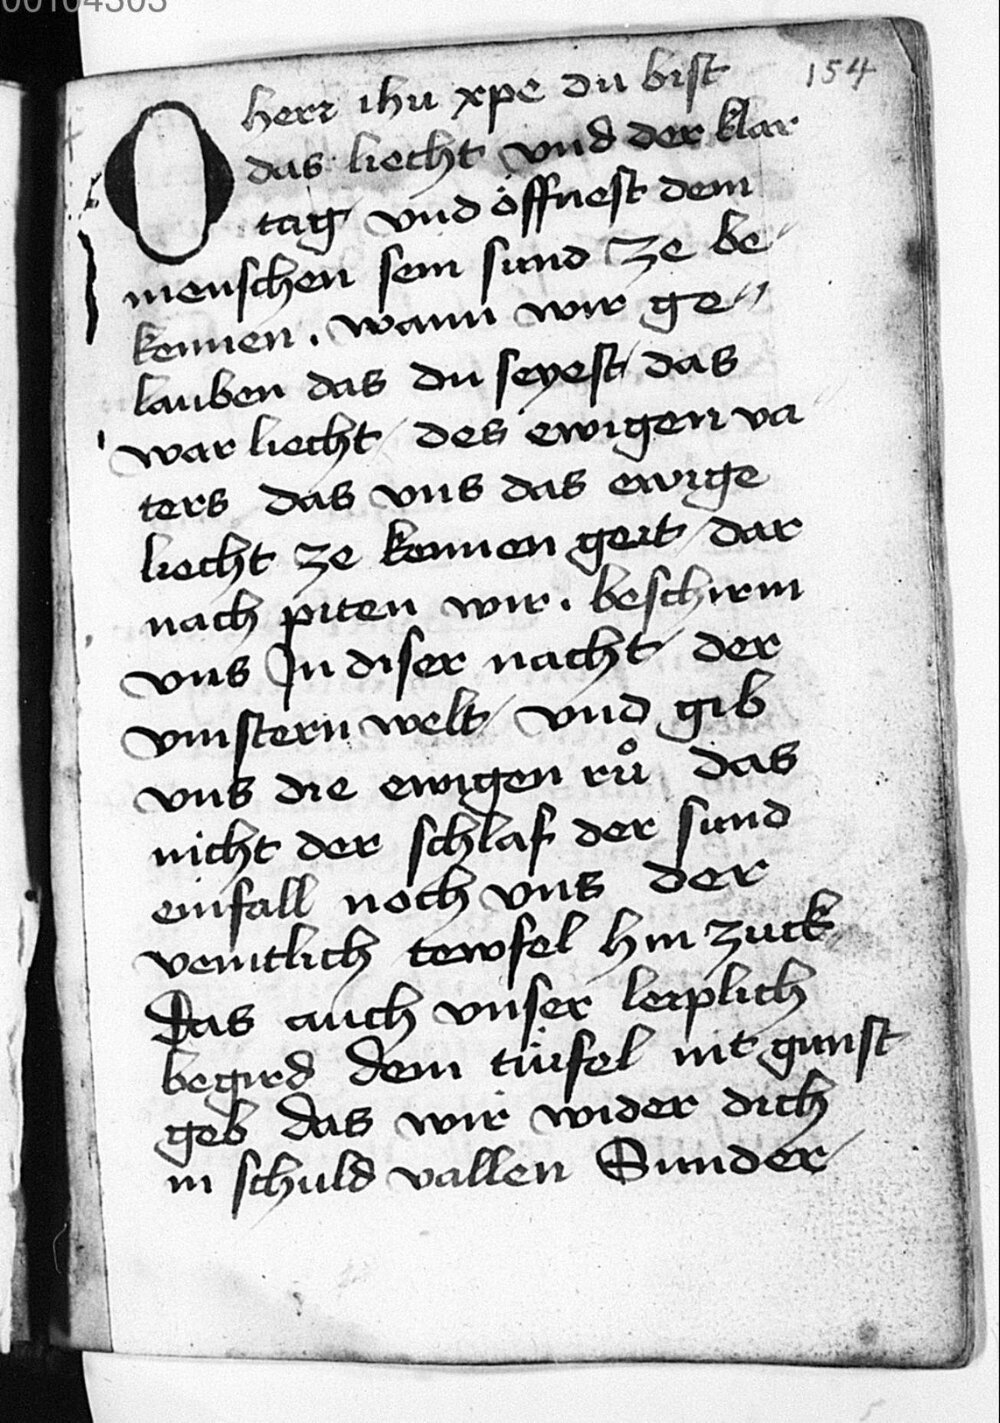 00104303
154
O herr ihu xpe du bist
das liecht vnd der klar
tag vnd öffnest dem
menschen sein sund ze be
kennen . wann wir ge
lauben das du seyest das
war liecht / des ewigen va
ters das vns das ewige
liecht ze kennen geit / dar
nach piten wir . beschirm
vns In diser nacht / der
vinstern welt / vnd gib
vns die ewigen rů das
nicht der schlaf der sund
einfall noch vns der
veintlich tewfel hin zuck
Das auch vnser leiplich
begird dem tüifel nit gunst
geb das wir wider dich
in schuld vallen Sunder